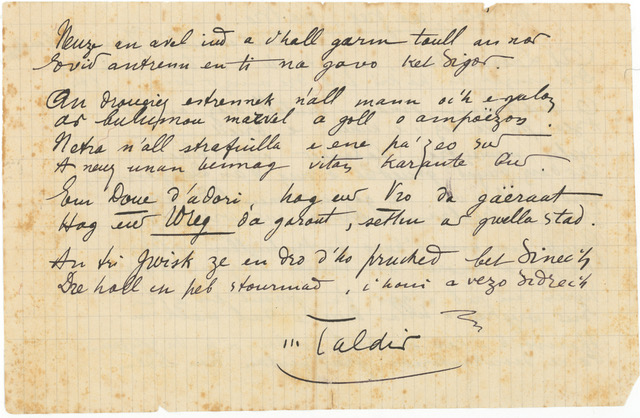 Neuze an avel ind a c'hall garm toull an nor
Evid antrenn en ti na gavo ket digor.
An drougiez estrennek n'all mann oc'h e galoz
ar bulupnou marvel a goll o ampoëzos.
Netra n'all strafuilla e ene pa'zeo sur
A neuz unan bennag vitan karante bur.
Eun Doue d'adori, hag eur Vro da gäeraat
Hag eur Wreg da garout, settu ar gwella stad.
An tri gwisk ze en dro d'ho pruched bet dinec'h
Dre holl en peb stourmad, c'houi a vezo didrec'h
Taldir